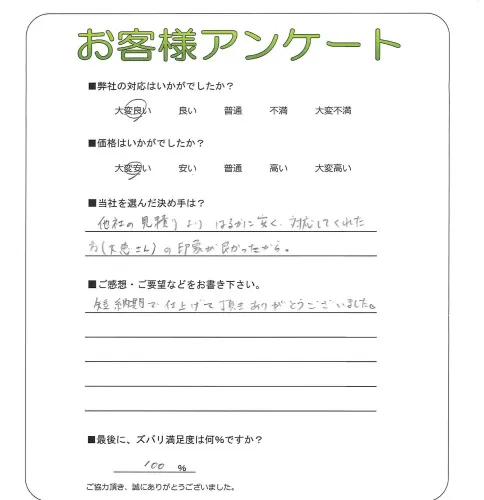 お客様アンケート
■弊社の対応はいかがでしたか？
大変良い 良い 普通 不満 大変不満
■価格はいかがでしたか？
大変安い 安い 普通 高い 大変高い
■当社を選んだ決め手は？
他社の見積りより はるかに安く、対応してくれた
方( さん)の印象が良かったから。
■ご感想・ご要望などをお書き下さい。
短納期で仕上げて頂きありがとうございました。
■最後に、ズバリ満足度は何%ですか？
100 %
ご協力頂き、誠にありがとうございました。